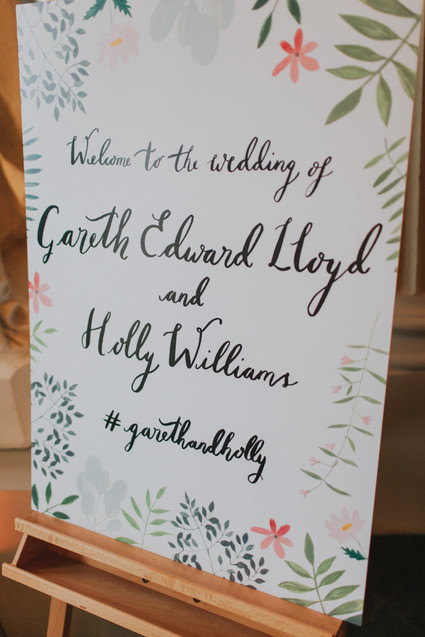 Welcome to the wedding of
Gareth Edward Lloyd
and
Holly Williams
#garethandholly